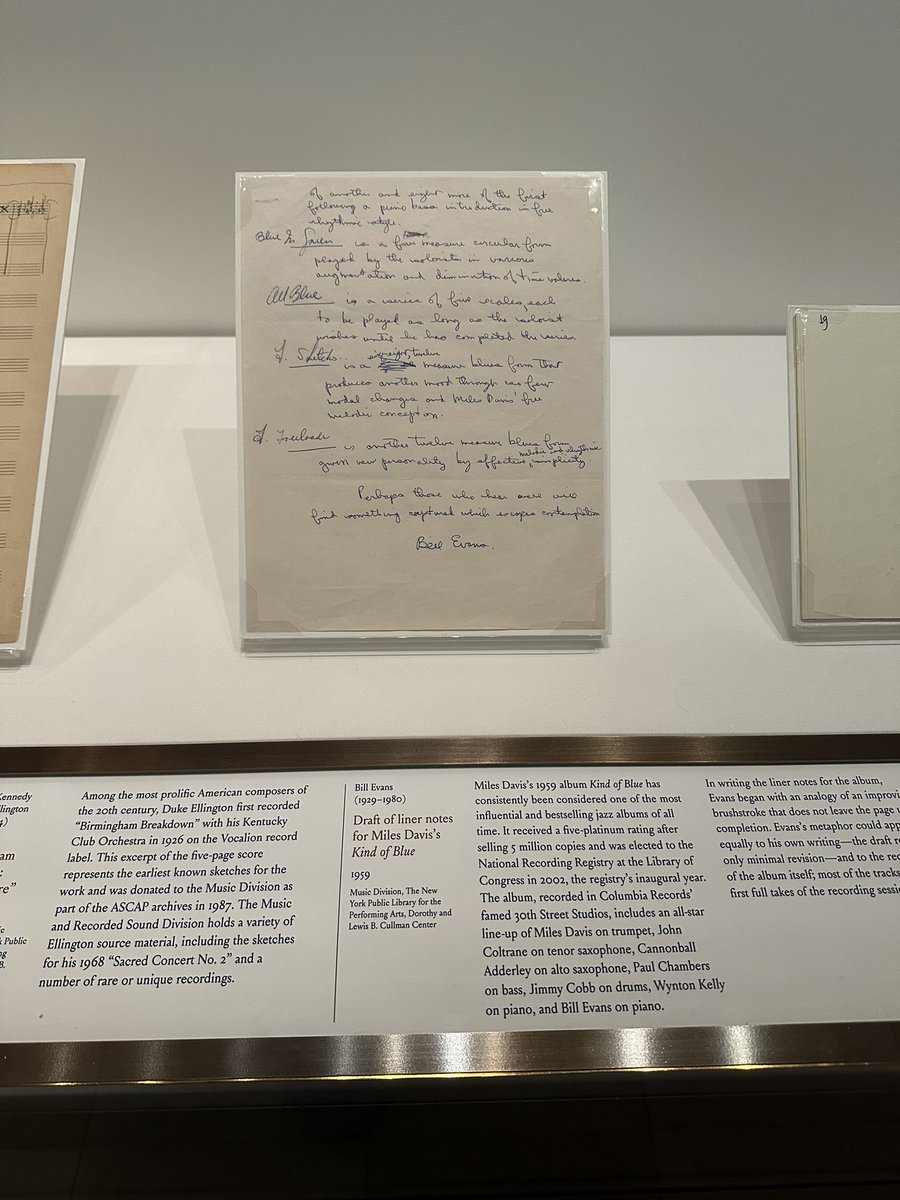 of another and eight more of the first
following a piano bass introduction in free
rhythmic style.
Blue In Green is a five measure circular form
played by the soloists in various
augmentation and diminution of time values.
All Blue is a series of five scales, each
to be played as long as the soloist
wishes until he has completed the series.
F. Sketches is a six eight, twelve measure blues form that
produces another mood through its few
modal changes and Miles Davis' free
melodic conception.
F. Freeloader is another twelve measure blues form
given new personality by effective melodic and rhythmic simplicity
Perhaps those who hear well will
find something captured which escapes contemplation
Bill Evans.
19
Kennedy
llington
4)
am
:
re"
ic
k Public
ng
B.
Among the most prolific American composers of
the 20th century, Duke Ellington first recorded
“Birmingham Breakdown” with his Kentucky
Club Orchestra in 1926 on the Vocalion record
label. This excerpt of the five-page score
represents the earliest known sketches for the
work and was donated to the Music Division as
part of the ASCAP archives in 1987. The Music
and Recorded Sound Division holds a variety of
Ellington source material, including the sketches
for his 1968 “Sacred Concert No. 2” and a
number of rare or unique recordings.
Bill Evans
(1929–1980)
Draft of liner notes
for Miles Davis’s
Kind of Blue
1959
Music Division, The New
York Public Library for the
Performing Arts, Dorothy and
Lewis B. Cullman Center
Miles Davis’s 1959 album Kind of Blue has
consistently been considered one of the most
influential and bestselling jazz albums of all
time. It received a five-platinum rating after
selling 5 million copies and was elected to the
National Recording Registry at the Library of
Congress in 2002, the registry’s inaugural year.
The album, recorded in Columbia Records’
famed 30th Street Studios, includes an all-star
line-up of Miles Davis on trumpet, John
Coltrane on tenor saxophone, Cannonball
Adderley on alto saxophone, Paul Chambers
on bass, Jimmy Cobb on drums, Wynton Kelly
on piano, and Bill Evans on piano.
In writing the liner notes for the album,
Evans began with an analogy of an improvi
brushstroke that does not leave the page u
completion. Evans’s metaphor could app
equally to his own writing—the draft re
only minimal revision—and to the rec
of the album itself; most of the tracks
first full takes of the recording sessi